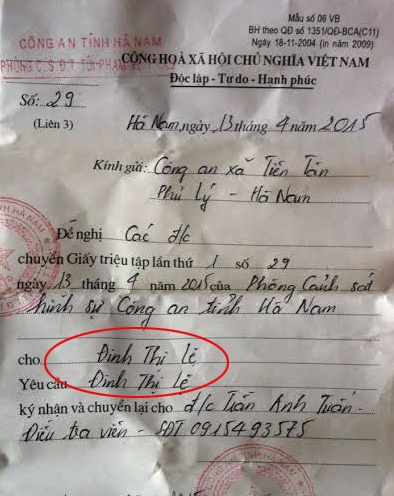 Mẫu số 06 VB
BH theo QĐ số 1351/QĐ-BCA(C11)
Ngày 18-11-2004 (in năm 2009)
CÔNG AN TỈNH HÀ NAM
PHÒNG C.S.Đ.T TỘI PHẠM
CỘNG HOÀ XÃ HỘI CHỦ NGHĨA VIỆT NAM
Độc lập - Tự do - Hạnh phúc
Số: 29
(Liên 3)
Hà Nam, ngày 13 tháng 4 năm 2015
Kính gửi: Công an xã Tiên Tân
Phủ Lý - Hà Nam
Đề nghị Các đ/c
chuyển Giấy triệu tập lần thứ 1 số 29
ngày 13 tháng 4 năm 2015 của Phòng Cảnh sát
hình sự Công an tỉnh Hà Nam
cho Đinh Thị Lệ
Yêu cầu Đinh Thị Lệ
ký nhận và chuyển lại cho đ/c Trần Anh Tuấn-
Điều tra viên - SĐT 0915493575